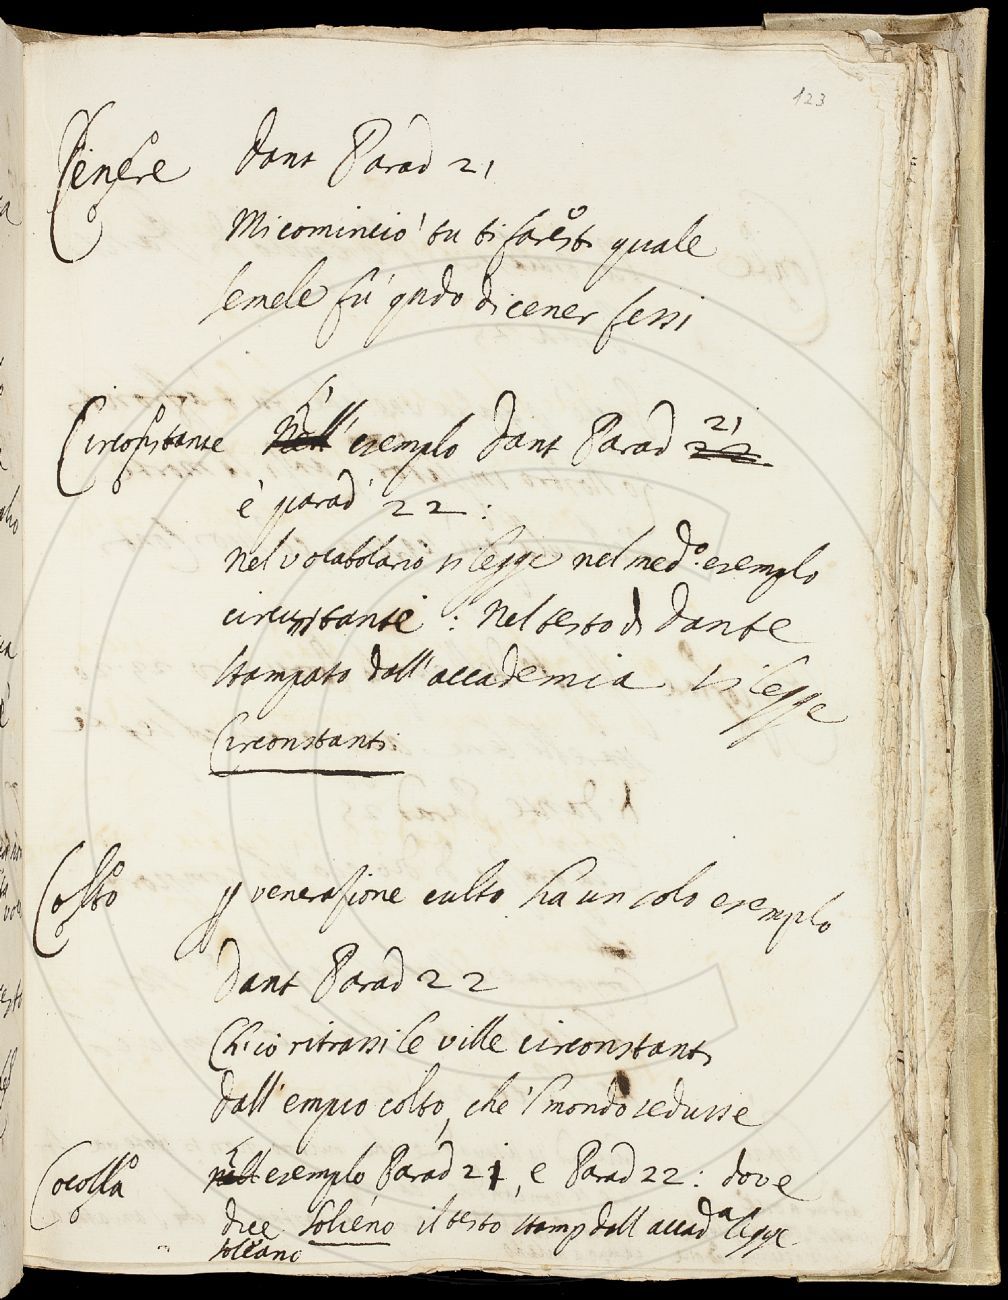 123
Cenere Dant Parad 21
Mi cominciò tu ti faresti quale
semele fù qndo di cener fessi
Circonstante L' esemplo Dant Parad 21
è parad 22 :
Nel vocabolario si legge nel med.o esemplo
circunstante : Nel testo di Dante
stampato dall' accademia si legge
Circonstanti
Colto p venerasione culto ha un solo esemplo
Dant Parad 22
Ch' io ritrassi le ville circonstanti
dall' empio colto, che 'l mondo sedusse
Cocolla L' esemplo Parad 21, e Parad 22 : dove
dice solieno il testo stamp dall accad.a legge
soleano